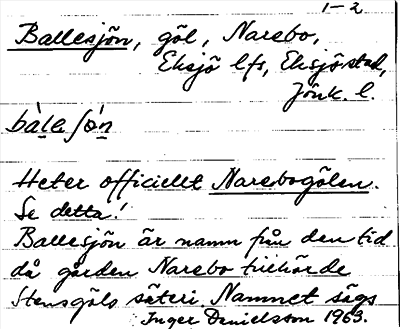 1-2
Ballesjön, göl, Narebo,
Eksjö lfs, Eksjö stad,
Jönk. l.
bàlaʃö́n
Heter officiellt Narebogölen.
Se detta!
Ballesjön är namn från den tid
då gården Narebo tillhörde
Stensgöls säteri. Namnet sägs
Inger Danielsson 1963.